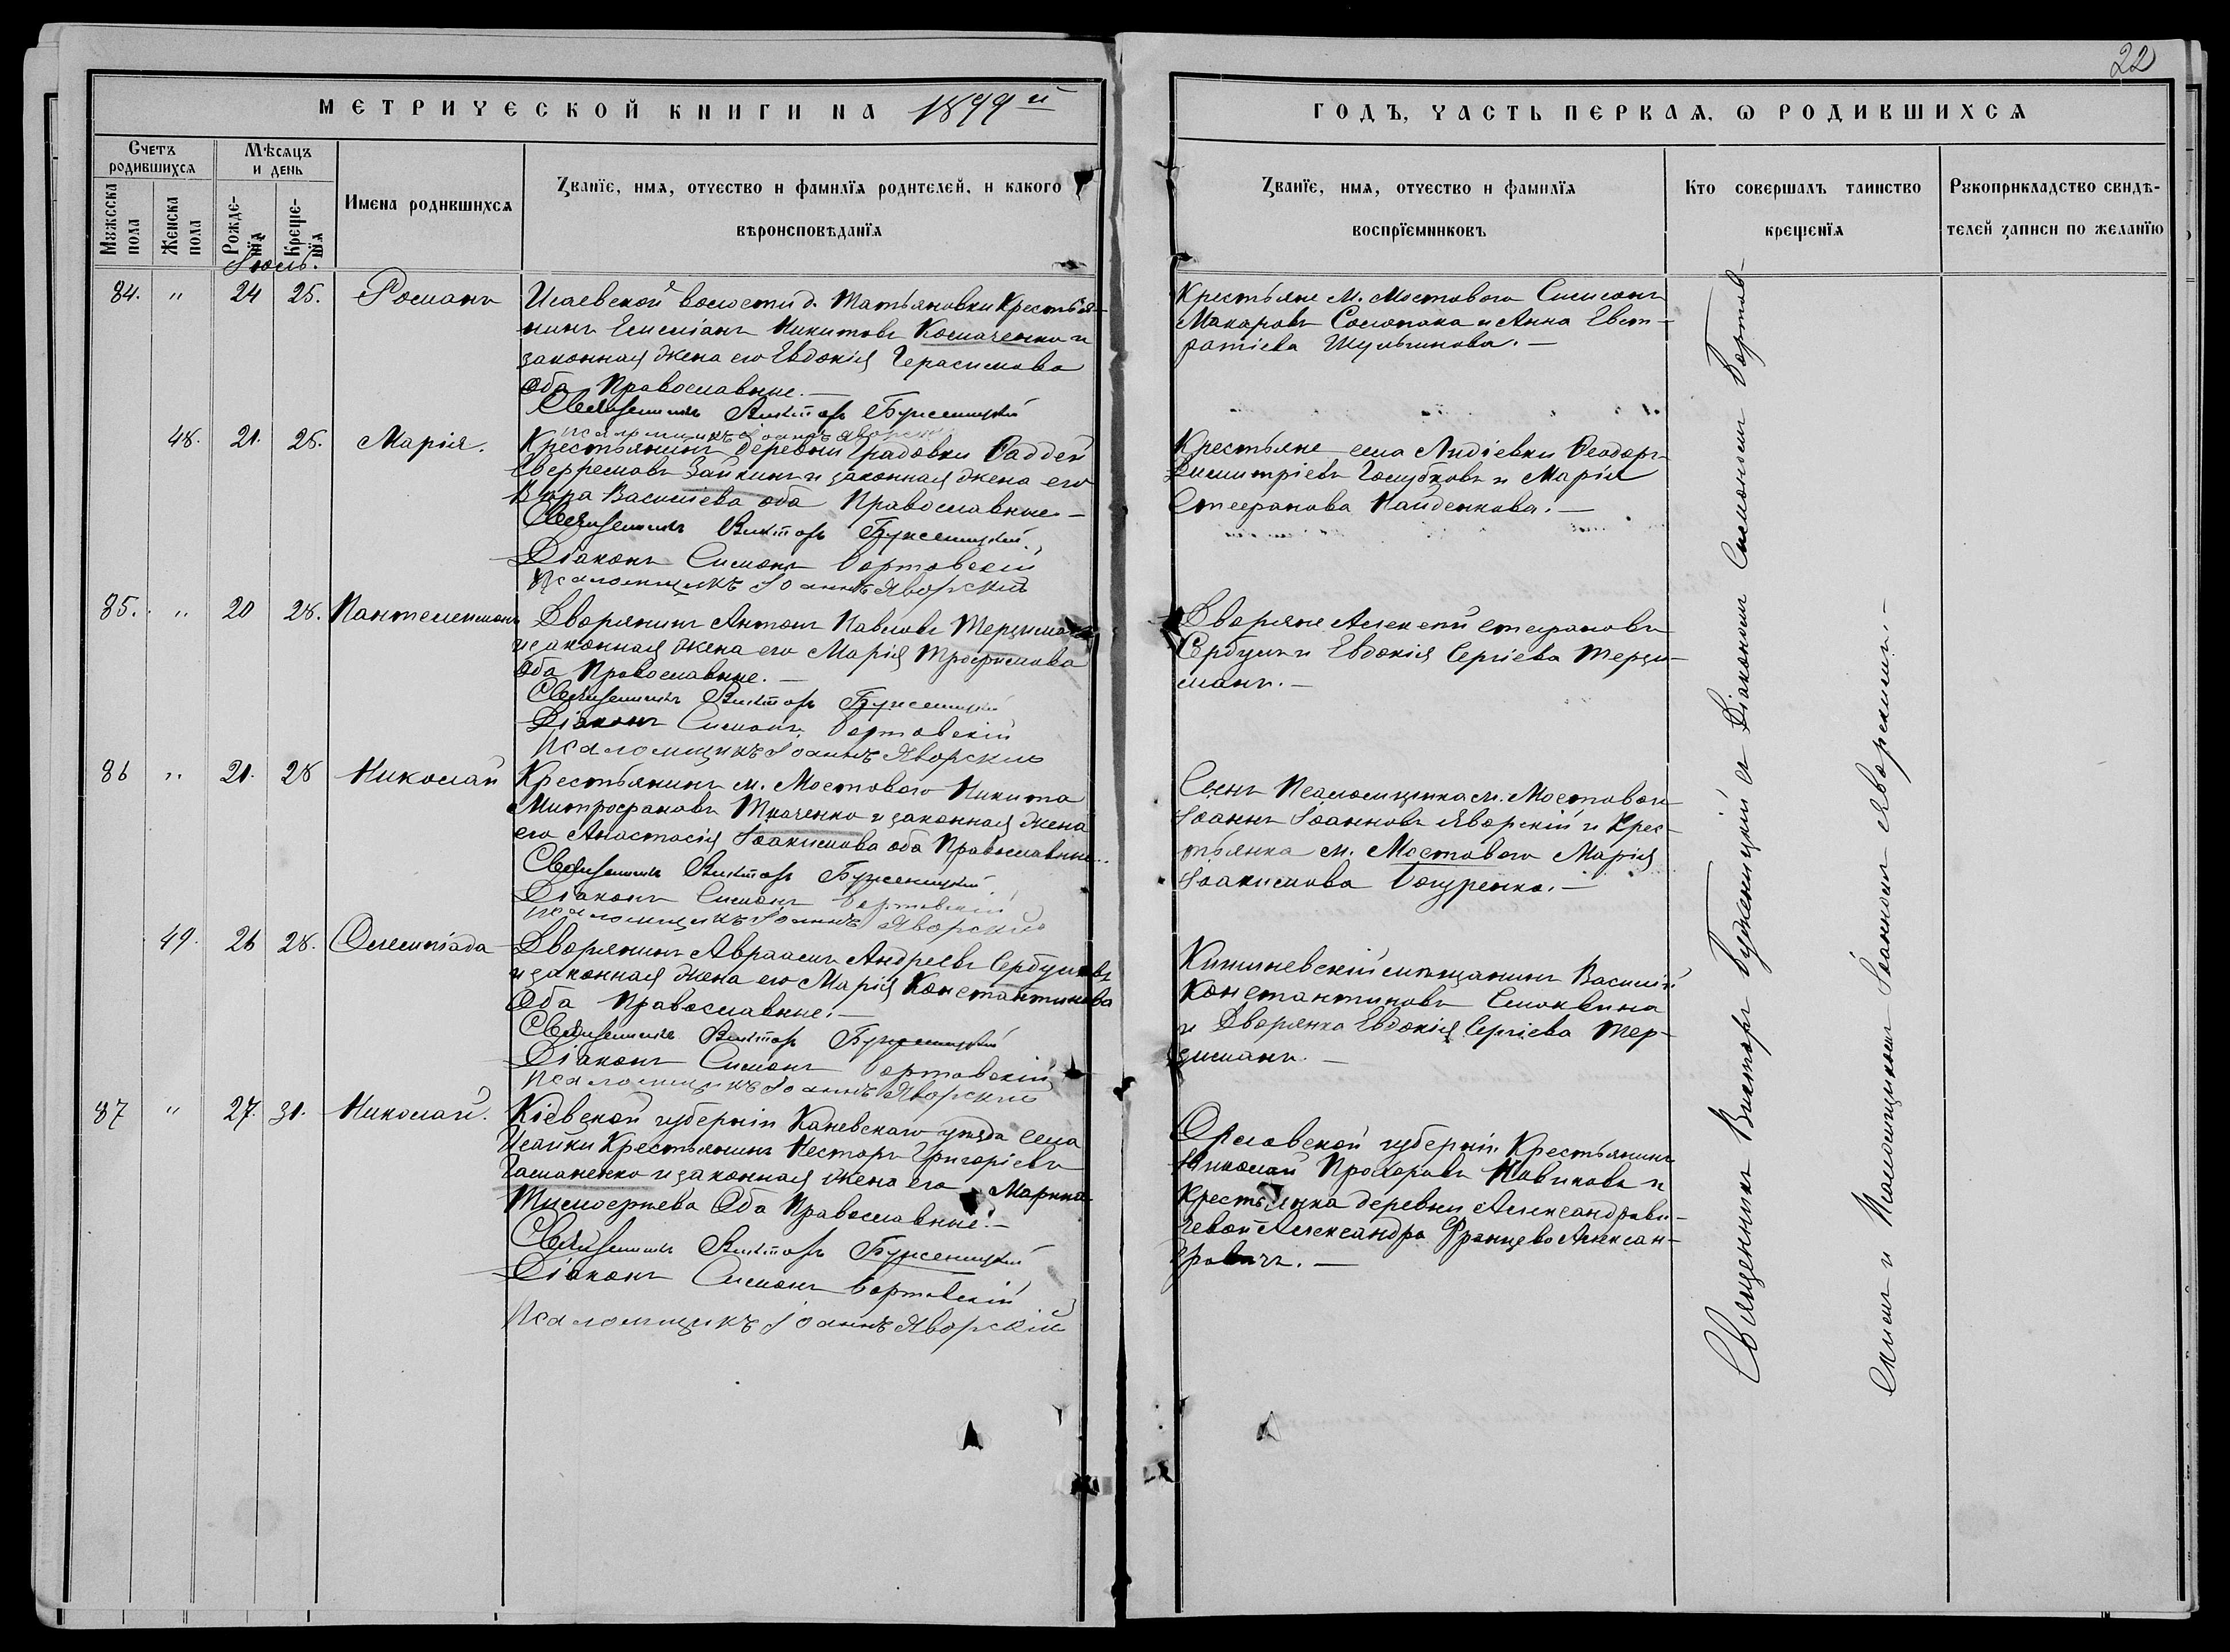 22
МЕТРИЧЕСКОЙ КНИГИ НА 1899й
ГОДЪ, ЧАСТЬ ПЕРВАѦ, Ѡ РОДИВШИХСѦ
Счетъ родившихсѧ
Мѣсѧцъ и день
Мꙋжеска пола
Женска пола
Рожденїѧ
Крещенїѧ
Имена родившихсѧ
Званїе, имѧ, отчество и фамилїѧ родителей, и какого
вѣроисповѣданїѧ
Званїе, имѧ, отчество и фамилїѧ
воспрїемниковъ
Кто совершалъ таинство
крещенїѧ
Рꙋкоприкладство свидѣ-
телей записи по желанїю
Іюль.
84. " 24 25. Романъ
Исаевской волости д. Татьяновки Крестья-
нинъ Емиліанъ Никитовъ Космаченко и
законная жена его Евдокія Герасимова
Оба Православные.—
Священникъ Викторъ Буженицкій
Псаломщикъ Іоаннъ Яворскій
Крестьяне м. Мостового Симеонъ
Макаровъ Солопака и Анна Евст-
ратіева Шульгинова.—
48. 21. 25. Марія.
Крестьянинъ деревни Градовки Фаддей
Ефремовъ Зайкинъ и законная жена его
Вѣра Василіева оба Православные—
Священникъ Викторъ Буженицкій
Діаконъ Симеонъ Бортовскій
Псаломщикъ Іоаннъ Яворскій
Крестьяне села Лидіевки Феодоръ
Димитріевъ Голубковъ и Марія
Стефанова Найденкова.—
85. " 20 28. Пантелеимонъ
Дворянинъ Антонъ Павловъ Терзиманъ
и законная жена его Марія Трофимова
Оба Православные.—
Священникъ Викторъ Буженицкій
Діаконъ Симеонъ Бортовскій
Псаломщикъ Іоаннъ Яворскій
Дворяне Алексѣй Стефановъ
Сербулъ и Евдокія Сергіева Терзи-
манъ.—
86 " 21. 28 Николай
Крестьянинъ м. Мостового Никита
Митрофановъ Ткаченко и законная жена
его Анастасія Іоакимова оба Православные.
Священникъ Викторъ Буженицкій
Діаконъ Симеонъ Бортовскій
Псаломщикъ Іоаннъ Яворскій
Сынъ Псаломщика м. Мостового
Іоаннъ Іоанновъ Яворскій и Крес-
тьянка м. Мостового Марія
Іоакимова Боцуренко.—
49. 26 28. Олимпіада
Дворянинъ Авраамъ Андреевъ Сербуловъ
и законная жена его Марія Константинова
Оба Православные.—
Священникъ Викторъ Буженицкій
Діаконъ Симеонъ Бортовскій
Псаломщикъ Іоаннъ Яворскій
Кишиневскій мѣщанинъ Василій
Константиновъ Смоквина
и Дворянка Евдокія Сергіева Тер-
зиманъ.—
87 " 27. 31. Николай.
Кіевской губерніи Каневскаго уѣзда села
Исайки Крестьянинъ Несторъ Григоріевъ
Гаманенко и законная жена его Марина
Тимофеева Оба Православные.—
Священникъ Викторъ Буженицкій
Діаконъ Симеонъ Бортовскій
Псаломщикъ Іоаннъ Яворскій
Орловской губерніи Крестьянинъ
Николай Прохоровъ Новиковъ и
Крестьянка деревни Александрови-
чевой Александра Францева Алексан-
дровичъ.—
Священникъ Викторъ Буженицкій съ Діакономъ Симеономъ Бортов-
скимъ и Псаломщикомъ Іоанномъ Яворскимъ.—